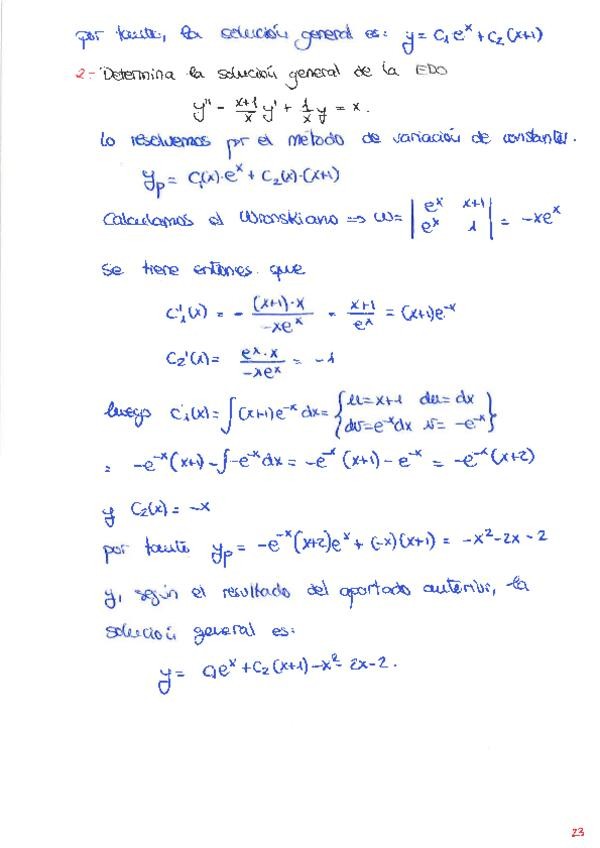 por tanto, la solución general es: y = C₁eˣ + C₂(x+1)
2.- Determina la solución general de la EDO
y'' - \frac{x+1}{x} y' + \frac{1}{x} y = x.
Lo resolvemos por el método de variación de constantes.
y_p = C₁(x)·eˣ + C₂(x)·(x+1)
Calculamos el Wronskiano ⇒ W = \begin{vmatrix} e^x & x+1 \\ e^x & 1 \end{vmatrix} = -xeˣ
Se tiene entonces que
C₁'(x) = - \frac{(x+1)·x}{-xe^x} = \frac{x+1}{e^x} = (x+1)e⁻ˣ
C₂'(x) = \frac{e^x·x}{-xe^x} = -1
luego C₁(x) = ∫(x+1)e⁻ˣdx = \begin{Bmatrix} u=x+1 & du=dx \\ dv=e^{-x}dx & v=-e^{-x} \end{Bmatrix}
= -e⁻ˣ(x+1) - ∫-e⁻ˣdx = -e⁻ˣ(x+1) - e⁻ˣ = -e⁻ˣ(x+2)
y C₂(x) = -x
por tanto y_p = -e⁻ˣ(x+2)eˣ + (-x)(x+1) = -x² - 2x - 2
y, según el resultado del apartado anterior, la
solución general es:
y = C₁eˣ + C₂(x+1) - x² - 2x - 2.
23